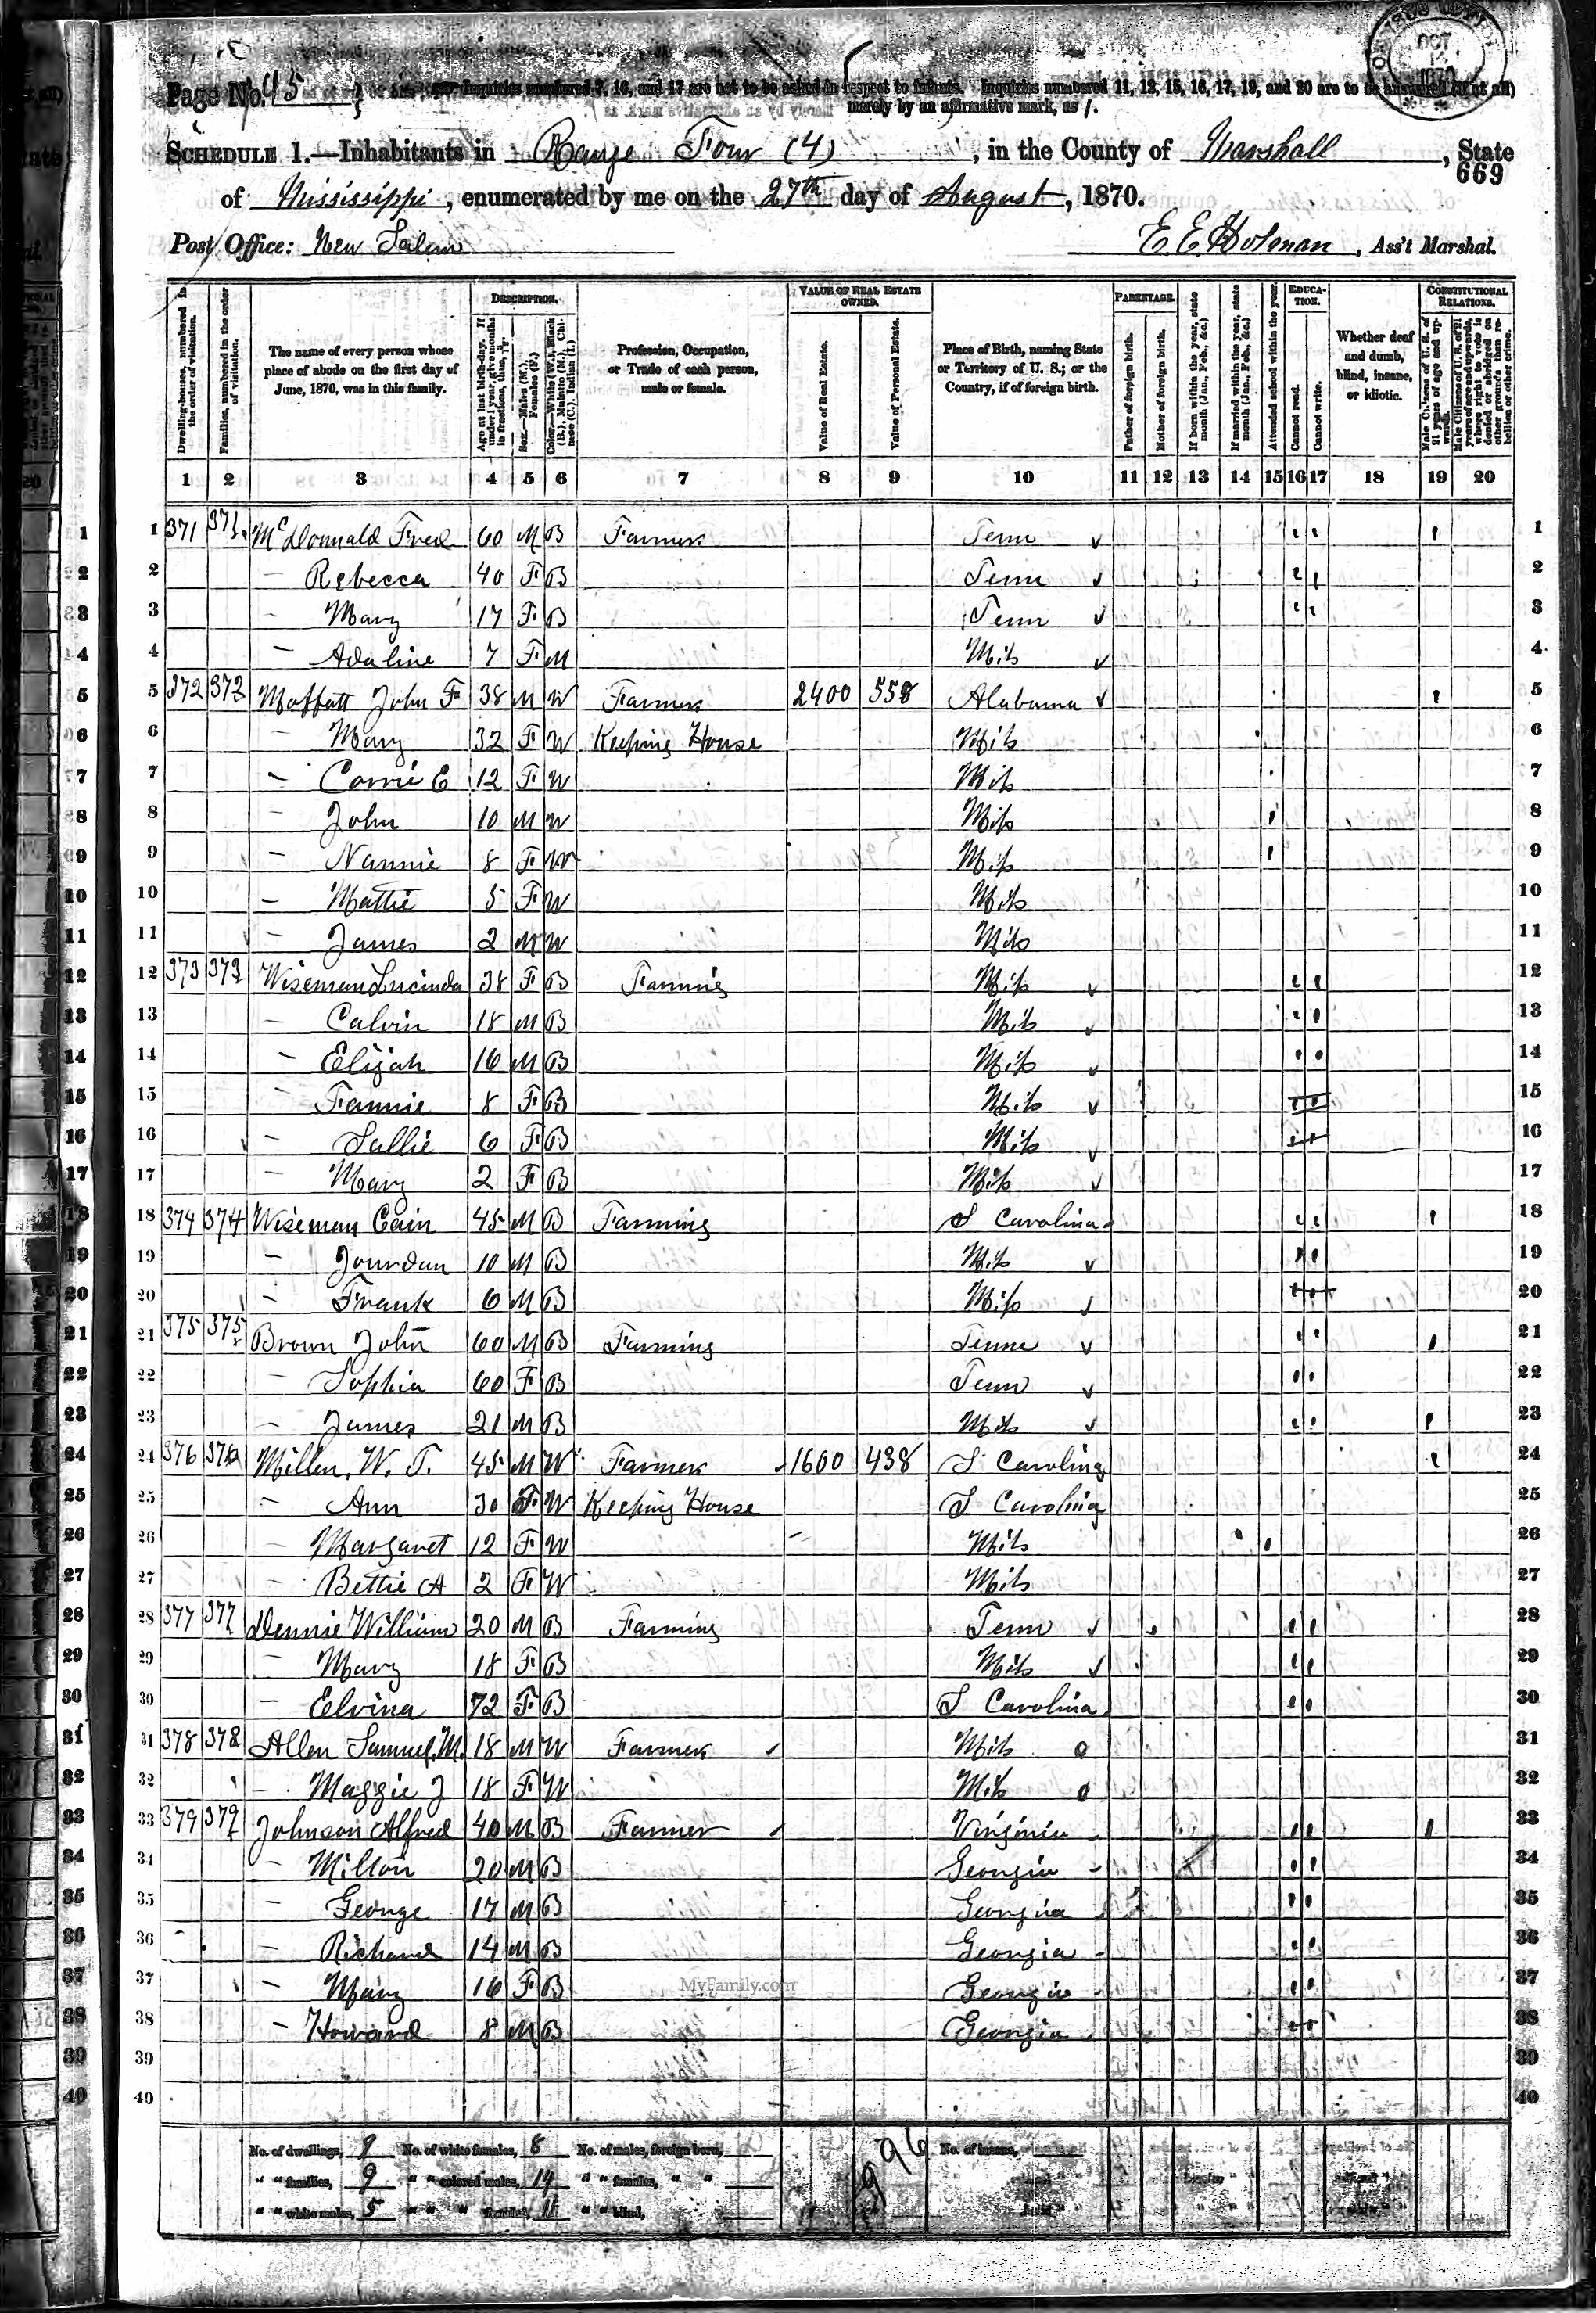 Page No. 45
Inquiries numbered 7, 16, and 17 are not to be asked in respect to infants. Inquiries numbered 11, 12, 15, 16, 17, 19, and 20 are to be answered (if at all)
merely by an affirmative mark, as /.
SCHEDULE 1.—Inhabitants in Range Four (4), in the County of Marshall, State
669
of Mississippi, enumerated by me on the 27th day of August, 1870.
Post Office: New Salem
E. E. Holman, Ass't Marshal.
Dwelling-houses, numbered in the order of visitation.
Families, numbered in the order of visitation.
The name of every person whose place of abode on the first day of June, 1870, was in this family.
DESCRIPTION.
Age at last birth-day. If under 1 year, give months in fractions, thus, 3/12
Sex.—Males (M.), Females (F.)
Color.—White (W.), Black (B.), Mulatto (M.), Chinese (C.), Indian (I.)
Profession, Occupation, or Trade of each person, male or female.
VALUE OF REAL ESTATE OWNED.
Value of Real Estate.
Value of Personal Estate.
Place of Birth, naming State or Territory of U. S.; or the Country, if of foreign birth.
PARENTAGE.
Father of foreign birth.
Mother of foreign birth.
If born within the year, state month (Jan., Feb., &c.)
If married within the year, state month (Jan., Feb., &c.)
Attended school within the year.
EDUCATION.
Cannot read.
Cannot write.
Whether deaf and dumb, blind, insane, or idiotic.
CONSTITUTIONAL RELATIONS.
Male Citizens of U. S. of 21 years of age and upwards.
Male Citizens of U. S. of 21 years of age and upwards, whose right to vote is denied or abridged on other grounds than rebellion or other crime.
1 2 3 4 5 6 7 8 9 10 11 12 13 14 15 16 17 18 19 20
1 371 371 McDonnald Fred 60 M B Farmer Tenn 1
2 — Rebecca 40 F B Tenn 2
3 — Mary 17 F B Tenn 3
4 — Adaline 7 F M Miss 4
5 372 372 Moffatt John F 38 M W Farmer 2400 558 Alabama 5
6 — Mary 32 F W Keeping House Miss 6
7 — Carrie E 12 F W Miss 7
8 — John 10 M W Miss 8
9 — Nannie 8 F W Miss 9
10 — Mattie 5 F W Miss 10
11 — James 2 M W Miss 11
12 373 373 Wiseman Lucinda 38 F B Farming Miss 12
13 — Calvin 18 M B Miss 13
14 — Elijah 16 M B Miss 14
15 — Fannie 8 F B Miss 15
16 — Sallie 6 F B Miss 16
17 — Mary 2 F B Miss 17
18 374 374 Wiseman Cain 45 M B Farming S Carolina 18
19 — Jourdan 10 M B Miss 19
20 — Frank 6 M B Miss 20
21 375 375 Brown John 60 M B Farming Tenne 21
22 — Sophia 60 F B Tenn 22
23 — James 21 M B Miss 23
24 376 376 Millen, W. T. 45 M W Farmer 1600 438 S Carolina 24
25 — Ann 30 F W Keeping House S Carolina 25
26 — Margaret 12 F W Miss 26
27 — Bettie A 2 F W Miss 27
28 377 377 Dennie William 20 M B Farming Tenn 28
29 — Mary 18 F B Miss 29
30 — Elvina 72 F B S Carolina 30
31 378 378 Allen Samuel M. 18 M W Farmer Miss 31
32 — Maggie J 18 F W Miss 32
33 379 379 Johnson Alfred 40 M B Farmer Virginia 33
34 — Milton 20 M B Georgia 34
35 — George 17 M B Georgia 35
36 — Richard 14 M B Georgia 36
37 — Mary 16 F B Georgia 37
MyFamily.com
38 — Howard 8 M B Georgia 38
39 39
40 40
No. of dwellings, 9 No. of white females, 8 No. of males, foreign born, No. of insane,
" " families, 9 " " colored males, 14 " " females, " "
" " white males, 5 " " " females, 11 " " blind,